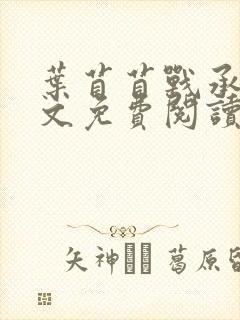 葉苜苜戰承
文免費閱讀
矢神 葛原